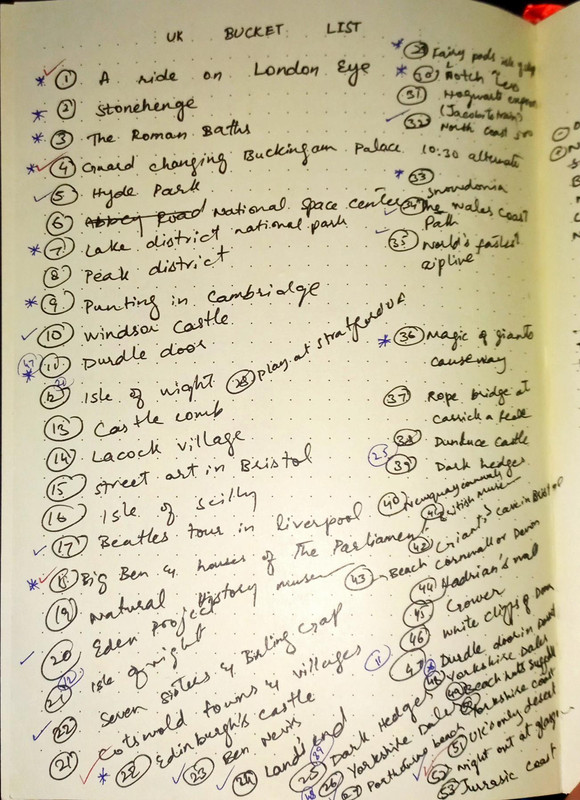 UK BUCKET LIST
* 1 A ride on London Eye
* 2 Stonehenge
* 3 The Roman Baths
* 4 Guard changing Buckingam Palace 10:30 alternate
5 Hyde Park
6 Abbey Road National Space center
* 7 Lake district national park
8 Peak district
* 9 Punting in Cambridge
10 Windsor Castle
* 11 Durdle door
12 Isle of wight
28 Play at
13 Castle comb
14 Lacock village
15 Street art in Bristol
16 Isle of scilly
17 Beatles tour in liverpool
* 18 Big Ben & houses of The Parliament
19 Natural History museum
20 Eden project
21 Isle of wight
22 Seven Sisters & Birling Gap
21 Cotswold towns & villages
* 22 Edinburgh's castle
23 Ben Nevis
24 Land's end
25 Dark Hedges
26 Yorkshire Dales
27 beach
* 29 Fairy pools isle of
* 30
31 Hogwarts express
(Jacobite train)
32 North coast 500
* 33 Snowdonia
34 The Wales coast
Path
35 World's fastest
zipline
* 36 Magic of giants
causeway
37 Rope bridge at
carrick a rede
38 Dunluce Castle
39 Dark hedges
40
41 British museum
42 Giant's cave in Bristol
43 Beach cornwall or Devon
44 Hadrian's wall
45 Gower
46 White cliffs of Dover
47 Durdle door in
48 Yorkshire Dales
49 Beach
50 Yorkshire coast
51 UK's only desert
52 night out at
53 Jurassic coast